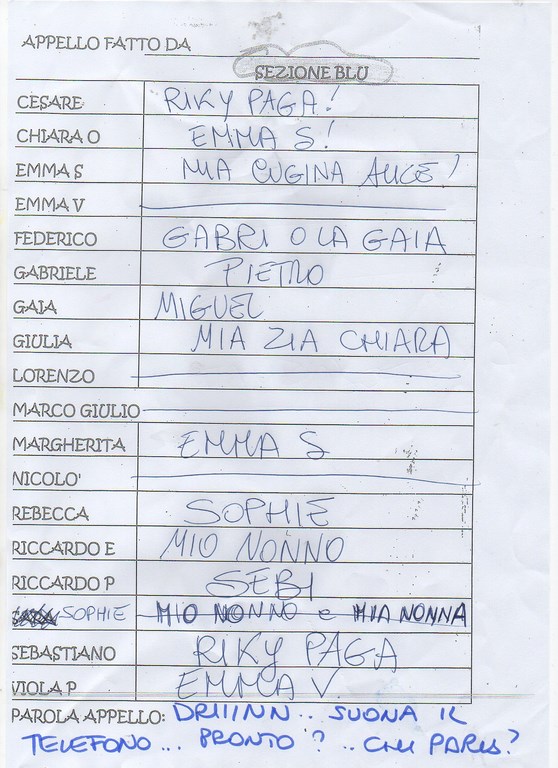 APPELLO FATTO DA
SEZIONE BLU
CESARE RIKY PAGA!
CHIARA O EMMA S!
EMMA S MIA CUGINA ALICE!
EMMA V
FEDERICO GABRI O LA GAIA
GABRIELE PIETRO
GAIA MIGUEL
GIULIA MIA ZIA CHIARA
LORENZO
MARCO GIULIO
MARGHERITA EMMA S
NICOLO'
REBECCA SOPHIE
RICCARDO E MIO NONNO
RICCARDO P SEBI
SARA SOPHIE MIO NONNO e MIA NONNA
SEBASTIANO RIKY PAGA
VIOLA P EMMA V
PAROLA APPELLO: DRIIINN... SUONA IL
TELEFONO... PRONTO? .. CHI PARLA?